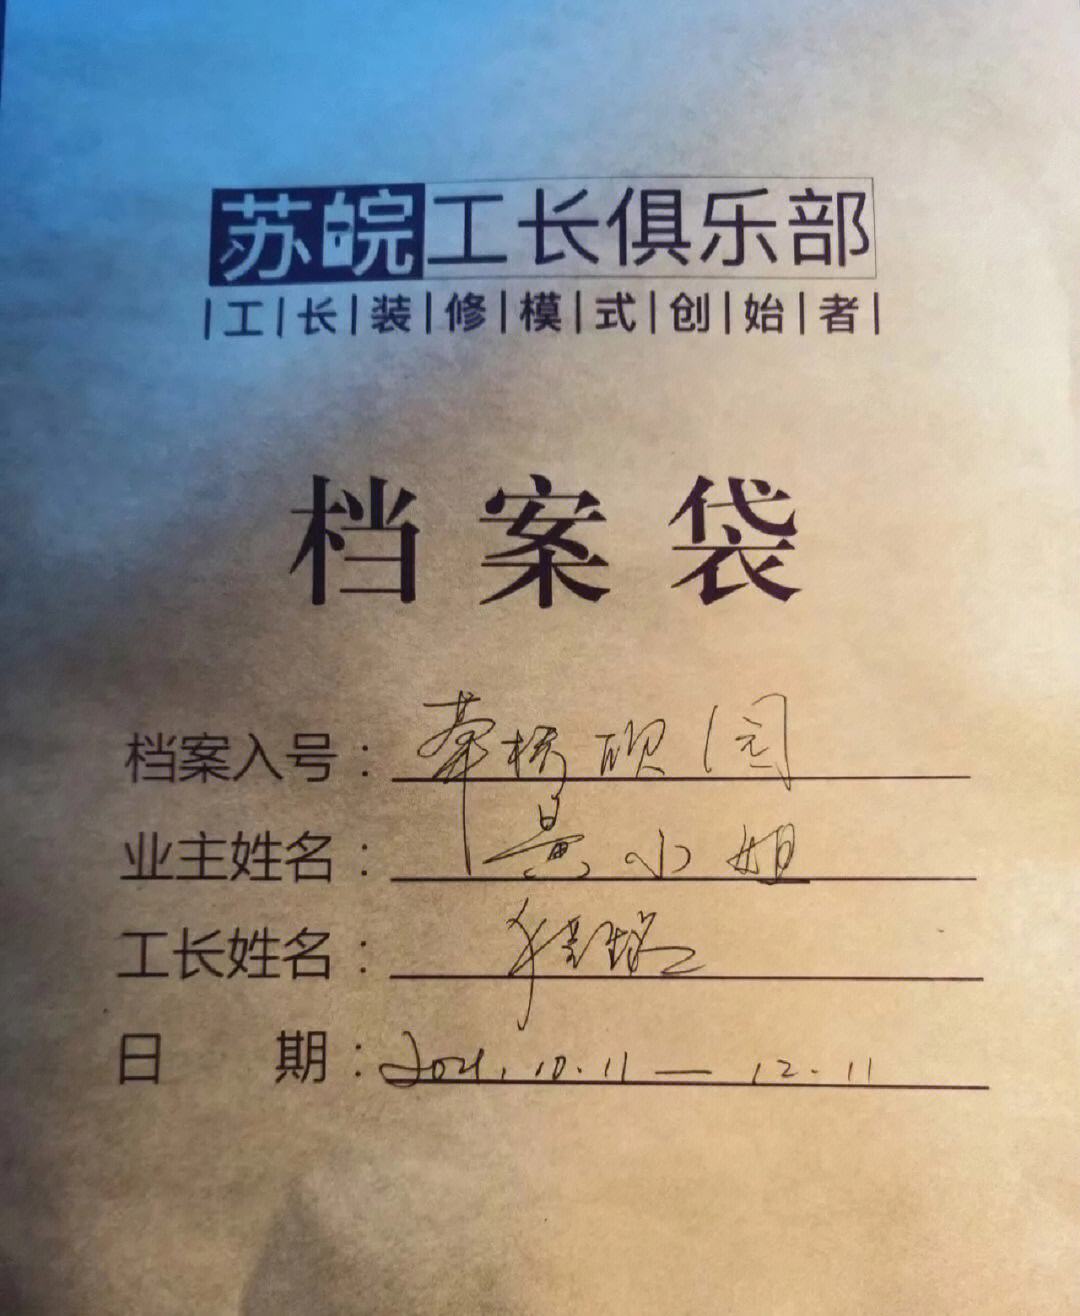 苏皖工长俱乐部
|工|长|装|修|模|式|创|始|者|
档案袋
档案入号：
业主姓名：黄小姐
工长姓名：
日 期：2021.10.11 — 12.11